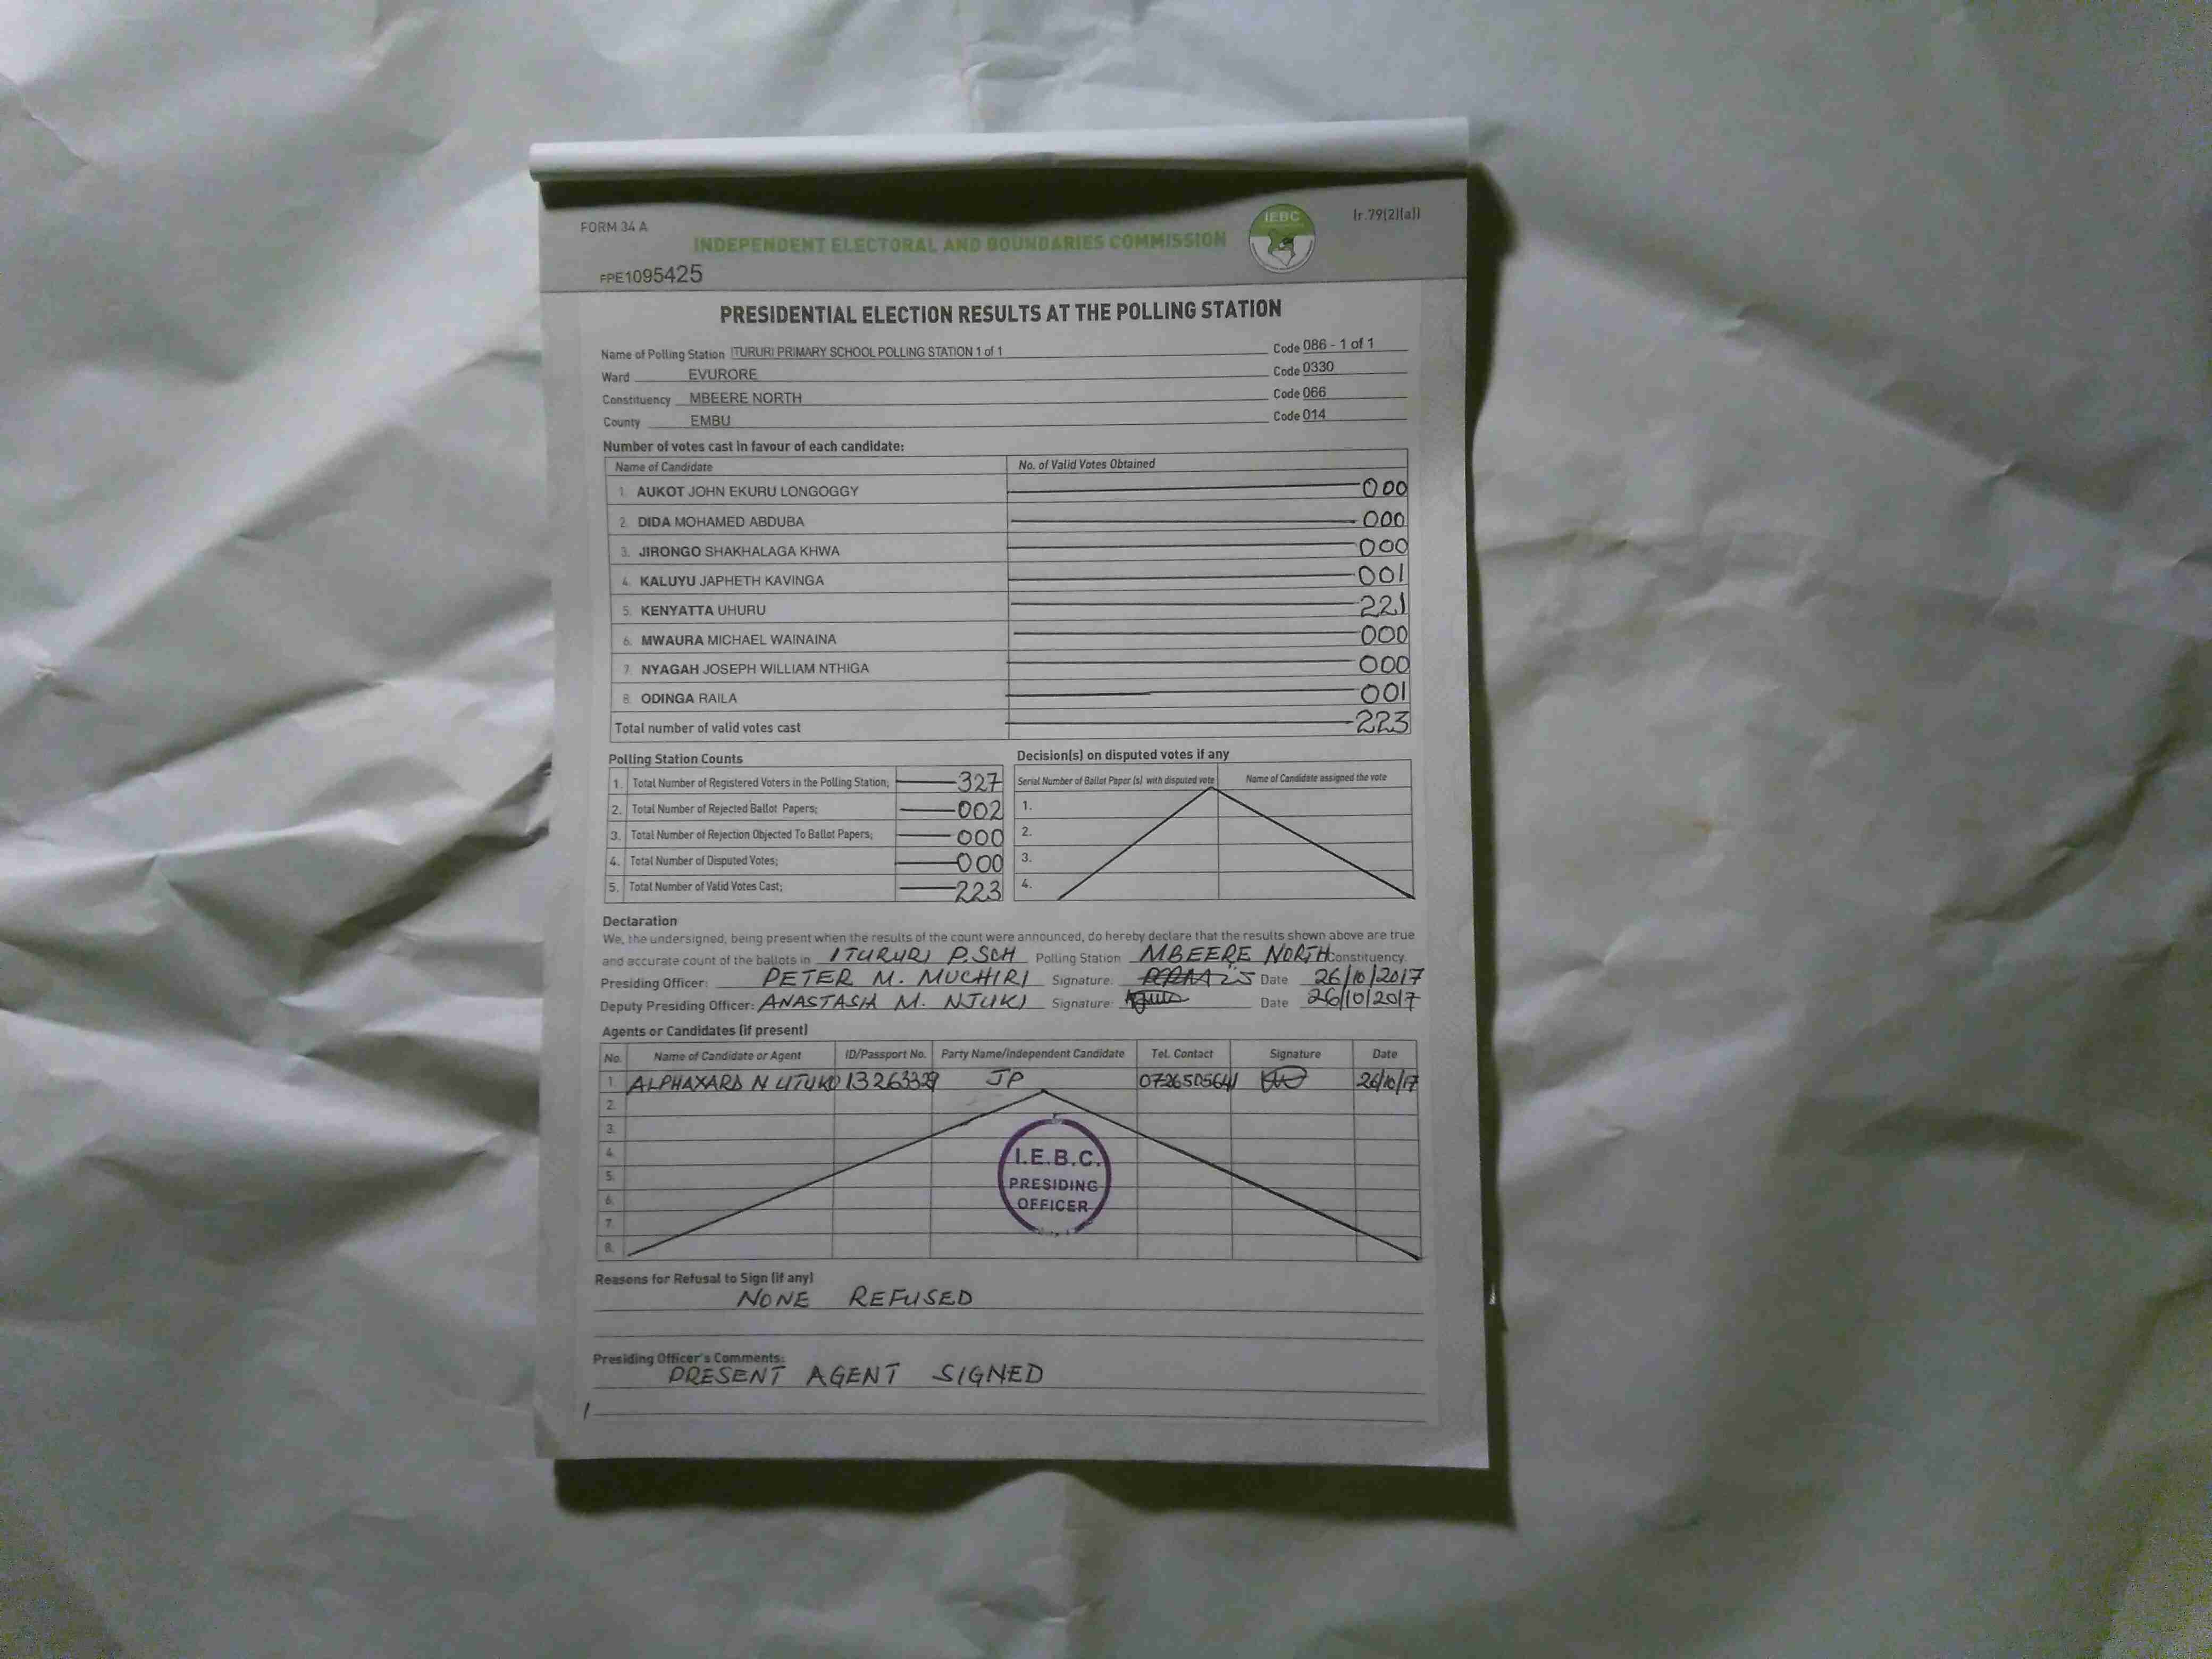 FORM 34 A
(r.79(2)(a))
IEBC
INDEPENDENT ELECTORAL AND BOUNDARIES COMMISSION
FPE1095425
PRESIDENTIAL ELECTION RESULTS AT THE POLLING STATION
Name of Polling Station ITURURI PRIMARY SCHOOL POLLING STATION 1 of 1 Code 086 - 1 of 1
Ward EVURORE Code 0330
Constituency MBEERE NORTH Code 066
County EMBU Code 014
Number of votes cast in favour of each candidate:
Name of Candidate No. of Valid Votes Obtained
1. AUKOT JOHN EKURU LONGOGGY 000
2. DIDA MOHAMED ABDUBA 000
3. JIRONGO SHAKHALAGA KHWA 000
4. KALUYU JAPHETH KAVINGA 001
5. KENYATTA UHURU 221
6. MWAURA MICHAEL WAINAINA 000
7. NYAGAH JOSEPH WILLIAM NTHIGA 000
8. ODINGA RAILA 001
Total number of valid votes cast 223
Polling Station Counts
1. Total Number of Registered Voters in the Polling Station; 327
2. Total Number of Rejected Ballot Papers; 002
3. Total Number of Rejection Objected To Ballot Papers; 000
4. Total Number of Disputed Votes; 000
5. Total Number of Valid Votes Cast; 223
Decision(s) on disputed votes if any
Serial Number of Ballot Paper (s) with disputed vote Name of Candidate assigned the vote
1.
2.
3.
4.
Declaration
We, the undersigned, being present when the results of the count were announced, do hereby declare that the results shown above are true
and accurate count of the ballots in ITURURI P.SCH Polling Station MBEERE NORTH Constituency.
Presiding Officer: PETER M. MUCHIRI Signature: Date 26/10/2017
Deputy Presiding Officer: ANASTASIA M. NJUKI Signature: Date 26/10/2017
Agents or Candidates (if present)
No. Name of Candidate or Agent ID/Passport No. Party Name/Independent Candidate Tel. Contact Signature Date
1. ALPHAXARD 13263329 JP 0726505641 26/10/17
2.
3.
4.
5.
6.
7.
8.
I.E.B.C.
PRESIDING
OFFICER
Reasons for Refusal to Sign (if any)
NONE REFUSED
Presiding Officer's Comments:
PRESENT AGENT SIGNED